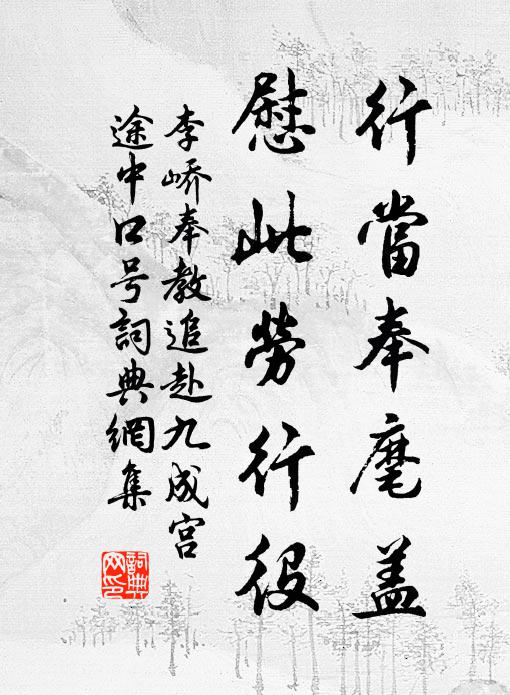 行當奉麾盖
慰此勞行役
李嶠奉教追赴九成宫
途中口号詞典網集
詞典网印